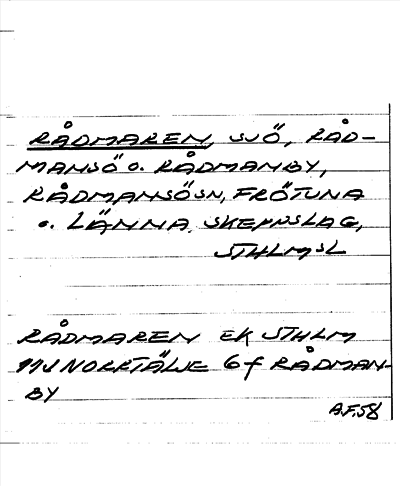 RÅDMAREN, SJÖ, RÅD-
MANSÖ o. RÅDMANBY,
RÅDMANSÖ SN, FRÖTUNA
o. LÄNNA SKEPPSLAG,
STHLMSL
RÅDMAREN EK STHLM
11J NORRTÄLJE 6f RÅDMAN-
BY
A.F.58